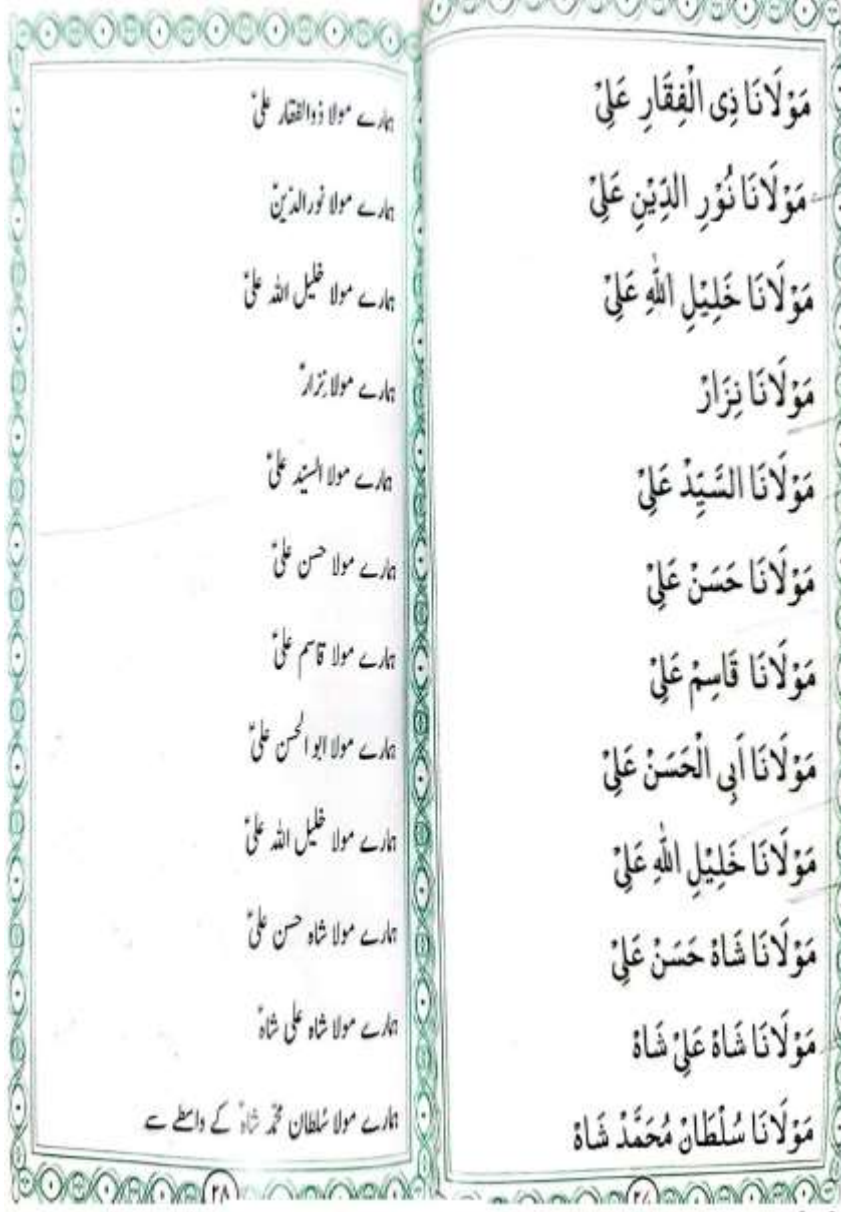 مَوْلَانَا ذِی الْفِقَارِ عَلِیْ
مَوْلَانَا نُوْرِ الدِّیْنِ عَلِیْ
مَوْلَانَا خَلِیْلِ اللّٰهِ عَلِیْ
مَوْلَانَا نِزَارْ
مَوْلَانَا السَّیِّدْ عَلِیْ
مَوْلَانَا حَسَنْ عَلِیْ
مَوْلَانَا قَاسِمْ عَلِیْ
مَوْلَانَا اَبِی الْحَسَنْ عَلِیْ
مَوْلَانَا خَلِیْلِ اللّٰهِ عَلِیْ
مَوْلَانَا شَاهْ حَسَنْ عَلِیْ
مَوْلَانَا شَاهْ عَلِیْ شَاهْ
مَوْلَانَا سُلْطَانْ مُحَمَّدْ شَاهْ
ہمارے مولا ذوالفقار علیؑ
ہمارے مولا نورالدّینؑ
ہمارے مولا خلیل اللہ علیؑ
ہمارے مولا نِزارؑ
ہمارے مولا السیّد علیؑ
ہمارے مولا حسن علیؑ
ہمارے مولا قاسم علیؑ
ہمارے مولا ابو الحسن علیؑ
ہمارے مولا خلیل اللہ علیؑ
ہمارے مولا شاہ حسن علیؑ
ہمارے مولا شاہ علی شاہؑ
ہمارے مولا سُلطان محمّد شاہؑ کے واسطے سے
۲۸